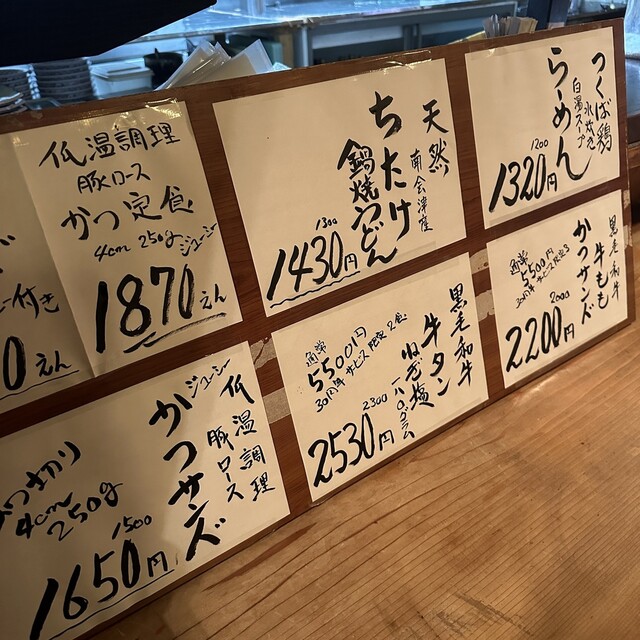 低温調理
豚ロース
かつ定食
4cm 250g
ジューシー
1870えん
天然
南会津産
ちたけ
鍋焼うどん
1300
1430円
つくば鶏
水炊き
白湯スープ
らーめん
1200
1320円
付き
0えん
低温調理
豚ロース
ジューシー
かつサンズ
4cm
250g
1500
1650円
黒毛和牛
牛タン
ねぎ塩
通常
5500円
30周年サービス限定2食
2300
2530円
黒毛和牛
牛もも
かつサンド
通常
5500円
30周年サービス限定3
2000
2200円